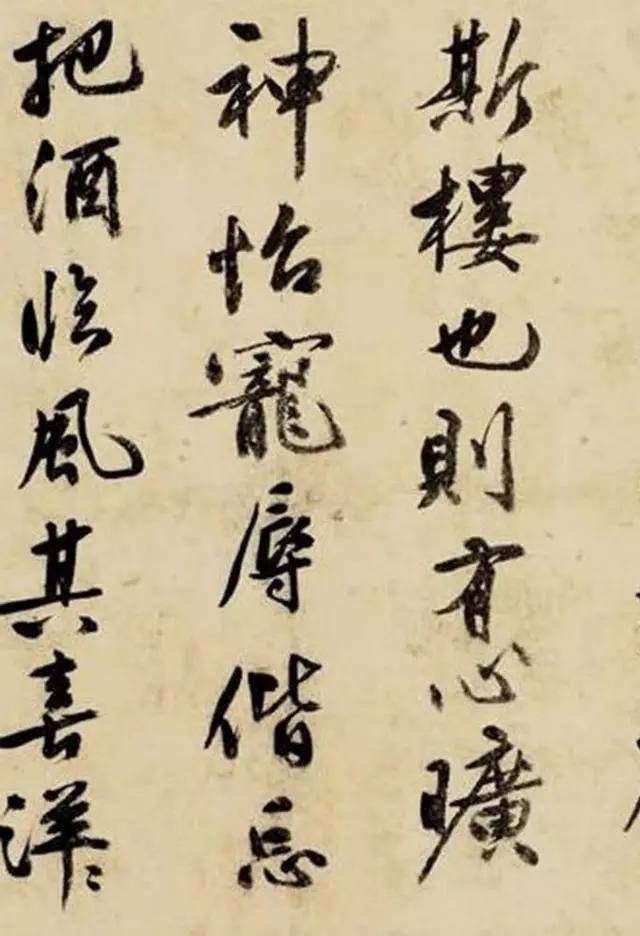 斯樓也則有心曠
神怡寵辱偕忘
把酒臨風其喜洋〻